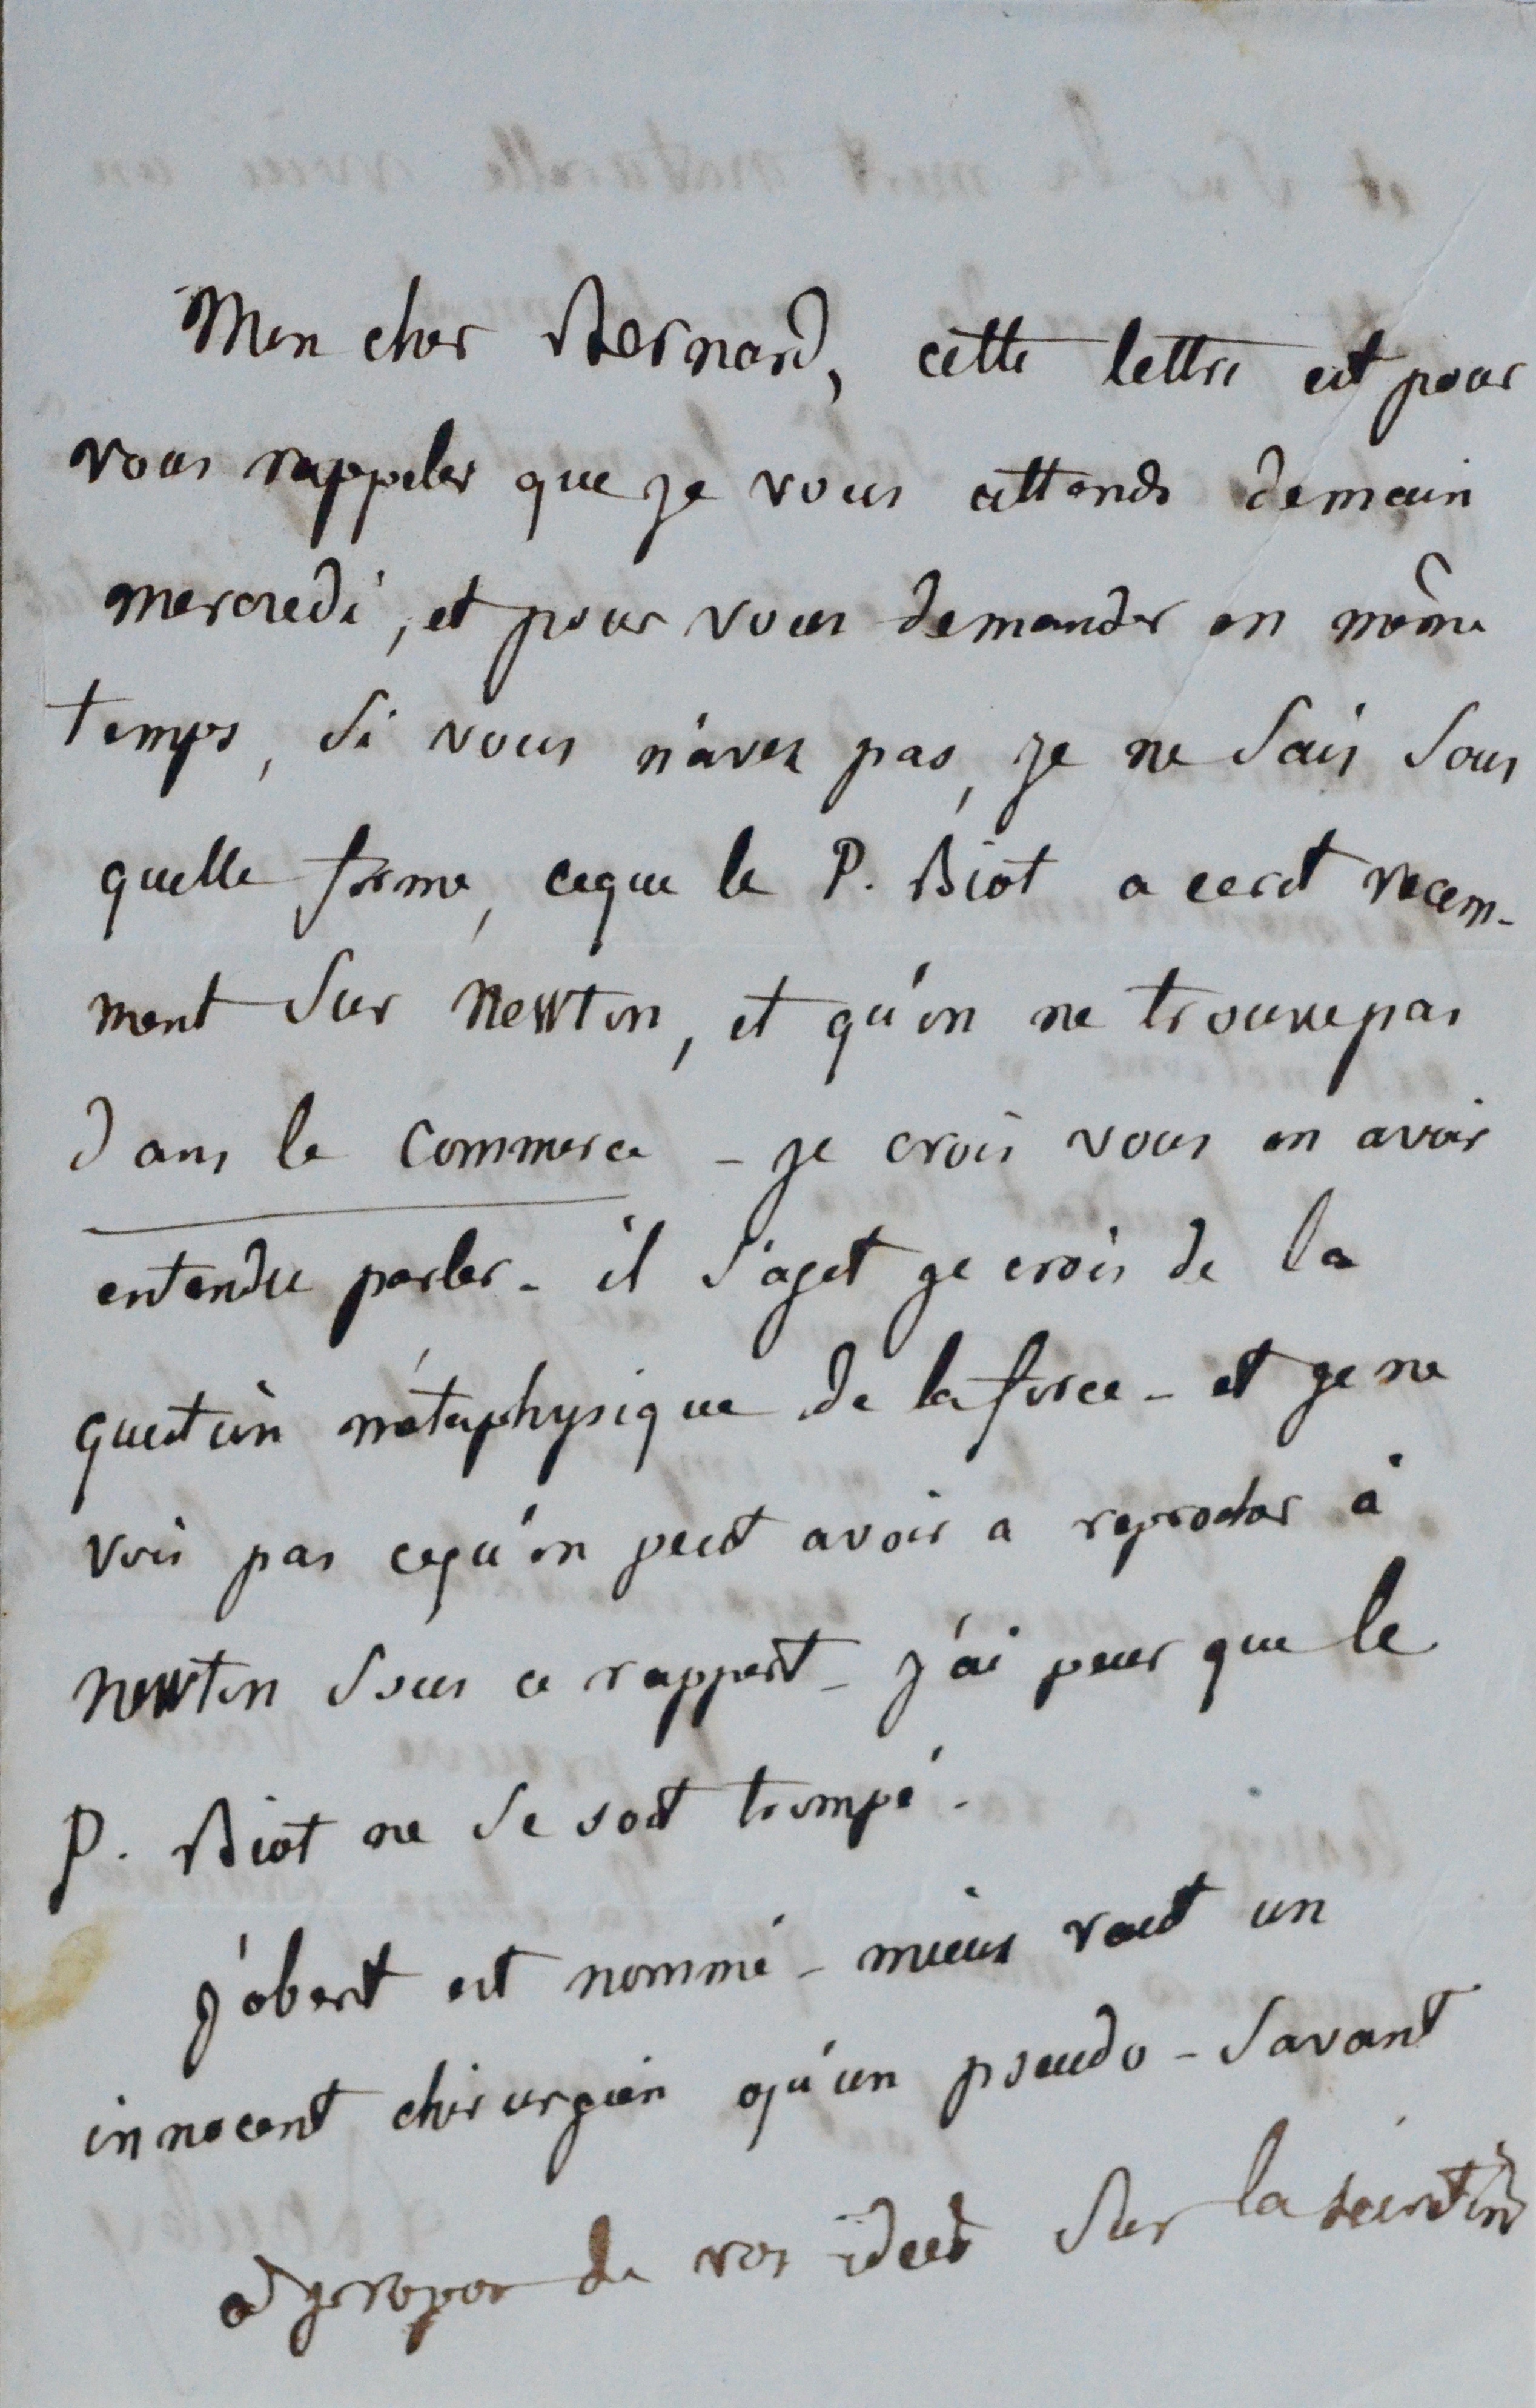 Mon cher Bernard, cette lettre est pour
vous rappeler que je vous attends demain
mercredi, et pour vous demander en même
temps, si vous n'avez pas, je ne sais sous
quelle forme, ceque le P. Biot a ecrit recem-
ment sur Newton, et qu'on ne trouve pas
dans le commerce - je crois vous en avoir
entendu parler - il s'agit je crois de la
question métaphysique de la force - et je ne
vois pas cequ'on peut avoir a reprocher à
newton sous ce rapport - j'ai peur que le
P. Biot ne se soit trompé.
jobert est nommé - mieux vaut un
innocent chirurgien qu'un pseudo-savant
a propos de vos idées sur la